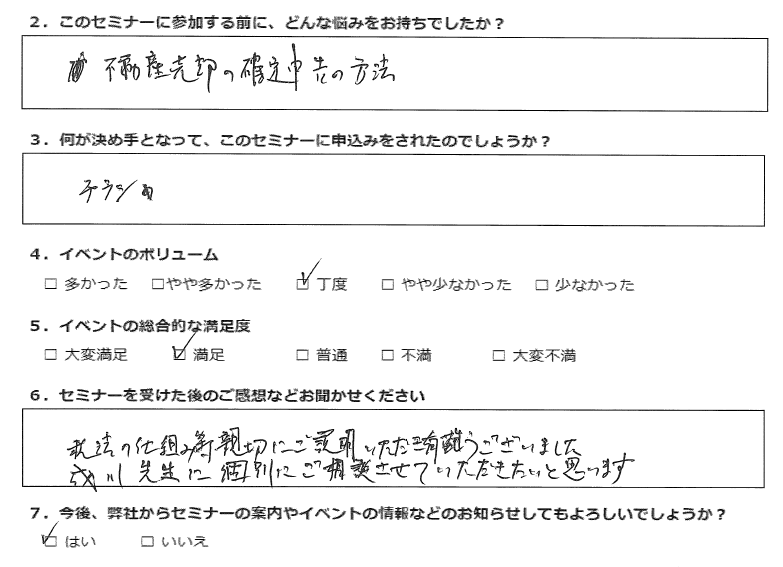 2．このセミナーに参加する前に、どんな悩みをお持ちでしたか？
不動産売却の確定申告の方法
3．何が決め手となって、このセミナーに申込みをされたのでしょうか？
チラシ
4．イベントのボリューム
□ 多かった □やや多かった ☑ 丁度 □ やや少なかった □ 少なかった
5．イベントの総合的な満足度
□ 大変満足 ☑ 満足 □ 普通 □ 不満 □ 大変不満
6．セミナーを受けた後のご感想などお聞かせください
税法の仕組み等親切にご説明いただき有難うございました
成川先生に個別にご相談させていただきたいと思います
7．今後、弊社からセミナーの案内やイベントの情報などのお知らせしてもよろしいでしょうか？
☑ はい □ いいえ